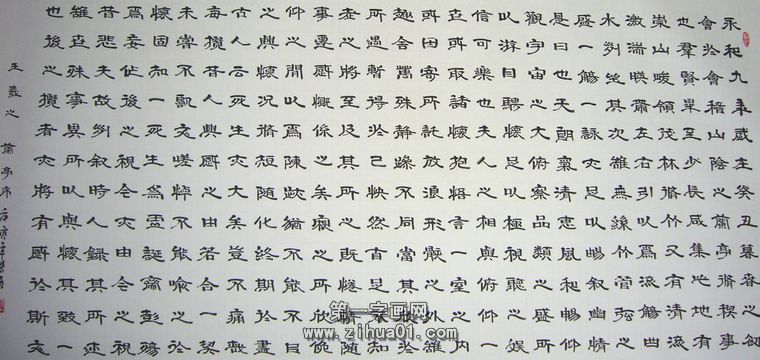 永和九年歲在癸丑暮春之初
會於會稽山陰之蘭亭脩禊事
也羣賢畢至少長咸集此地有
崇山峻領茂林脩竹又有清流
激湍暎帶左右引以為流觴曲
水列坐其次雖無絲竹管弦之
盛一觴一詠亦足以暢叙幽情
是日也天朗氣清惠風和暢仰
觀宇宙之大俯察品類之盛所
以遊目騁懷足以極視聽之娛
信可樂也夫人之相與俯仰一
世或取諸懷抱悟言一室之內
或因寄所託放浪形骸之外雖
趣舍萬殊靜躁不同當其欣於
所遇暫得於己快然自足不知
老之將至及其所之既惓情隨
事遷感慨係之矣向之所欣俛
仰之閒以為陳迹猶不能不以
之興懷況脩短隨化終期於盡
古人云死生亦大矣豈不痛哉
每攬昔人興感之由若合一契
未嘗不臨文嗟悼不能喻之於
懷固知一死生為虛誕齊彭殤
為妄作後之視今亦由今之視
昔悲夫故列叙時人錄其所述
雖世殊事異所以興懷其致一
也後之攬者亦將有感於斯文
王羲之 蘭亭序
第一字画网
www.zihua01.com